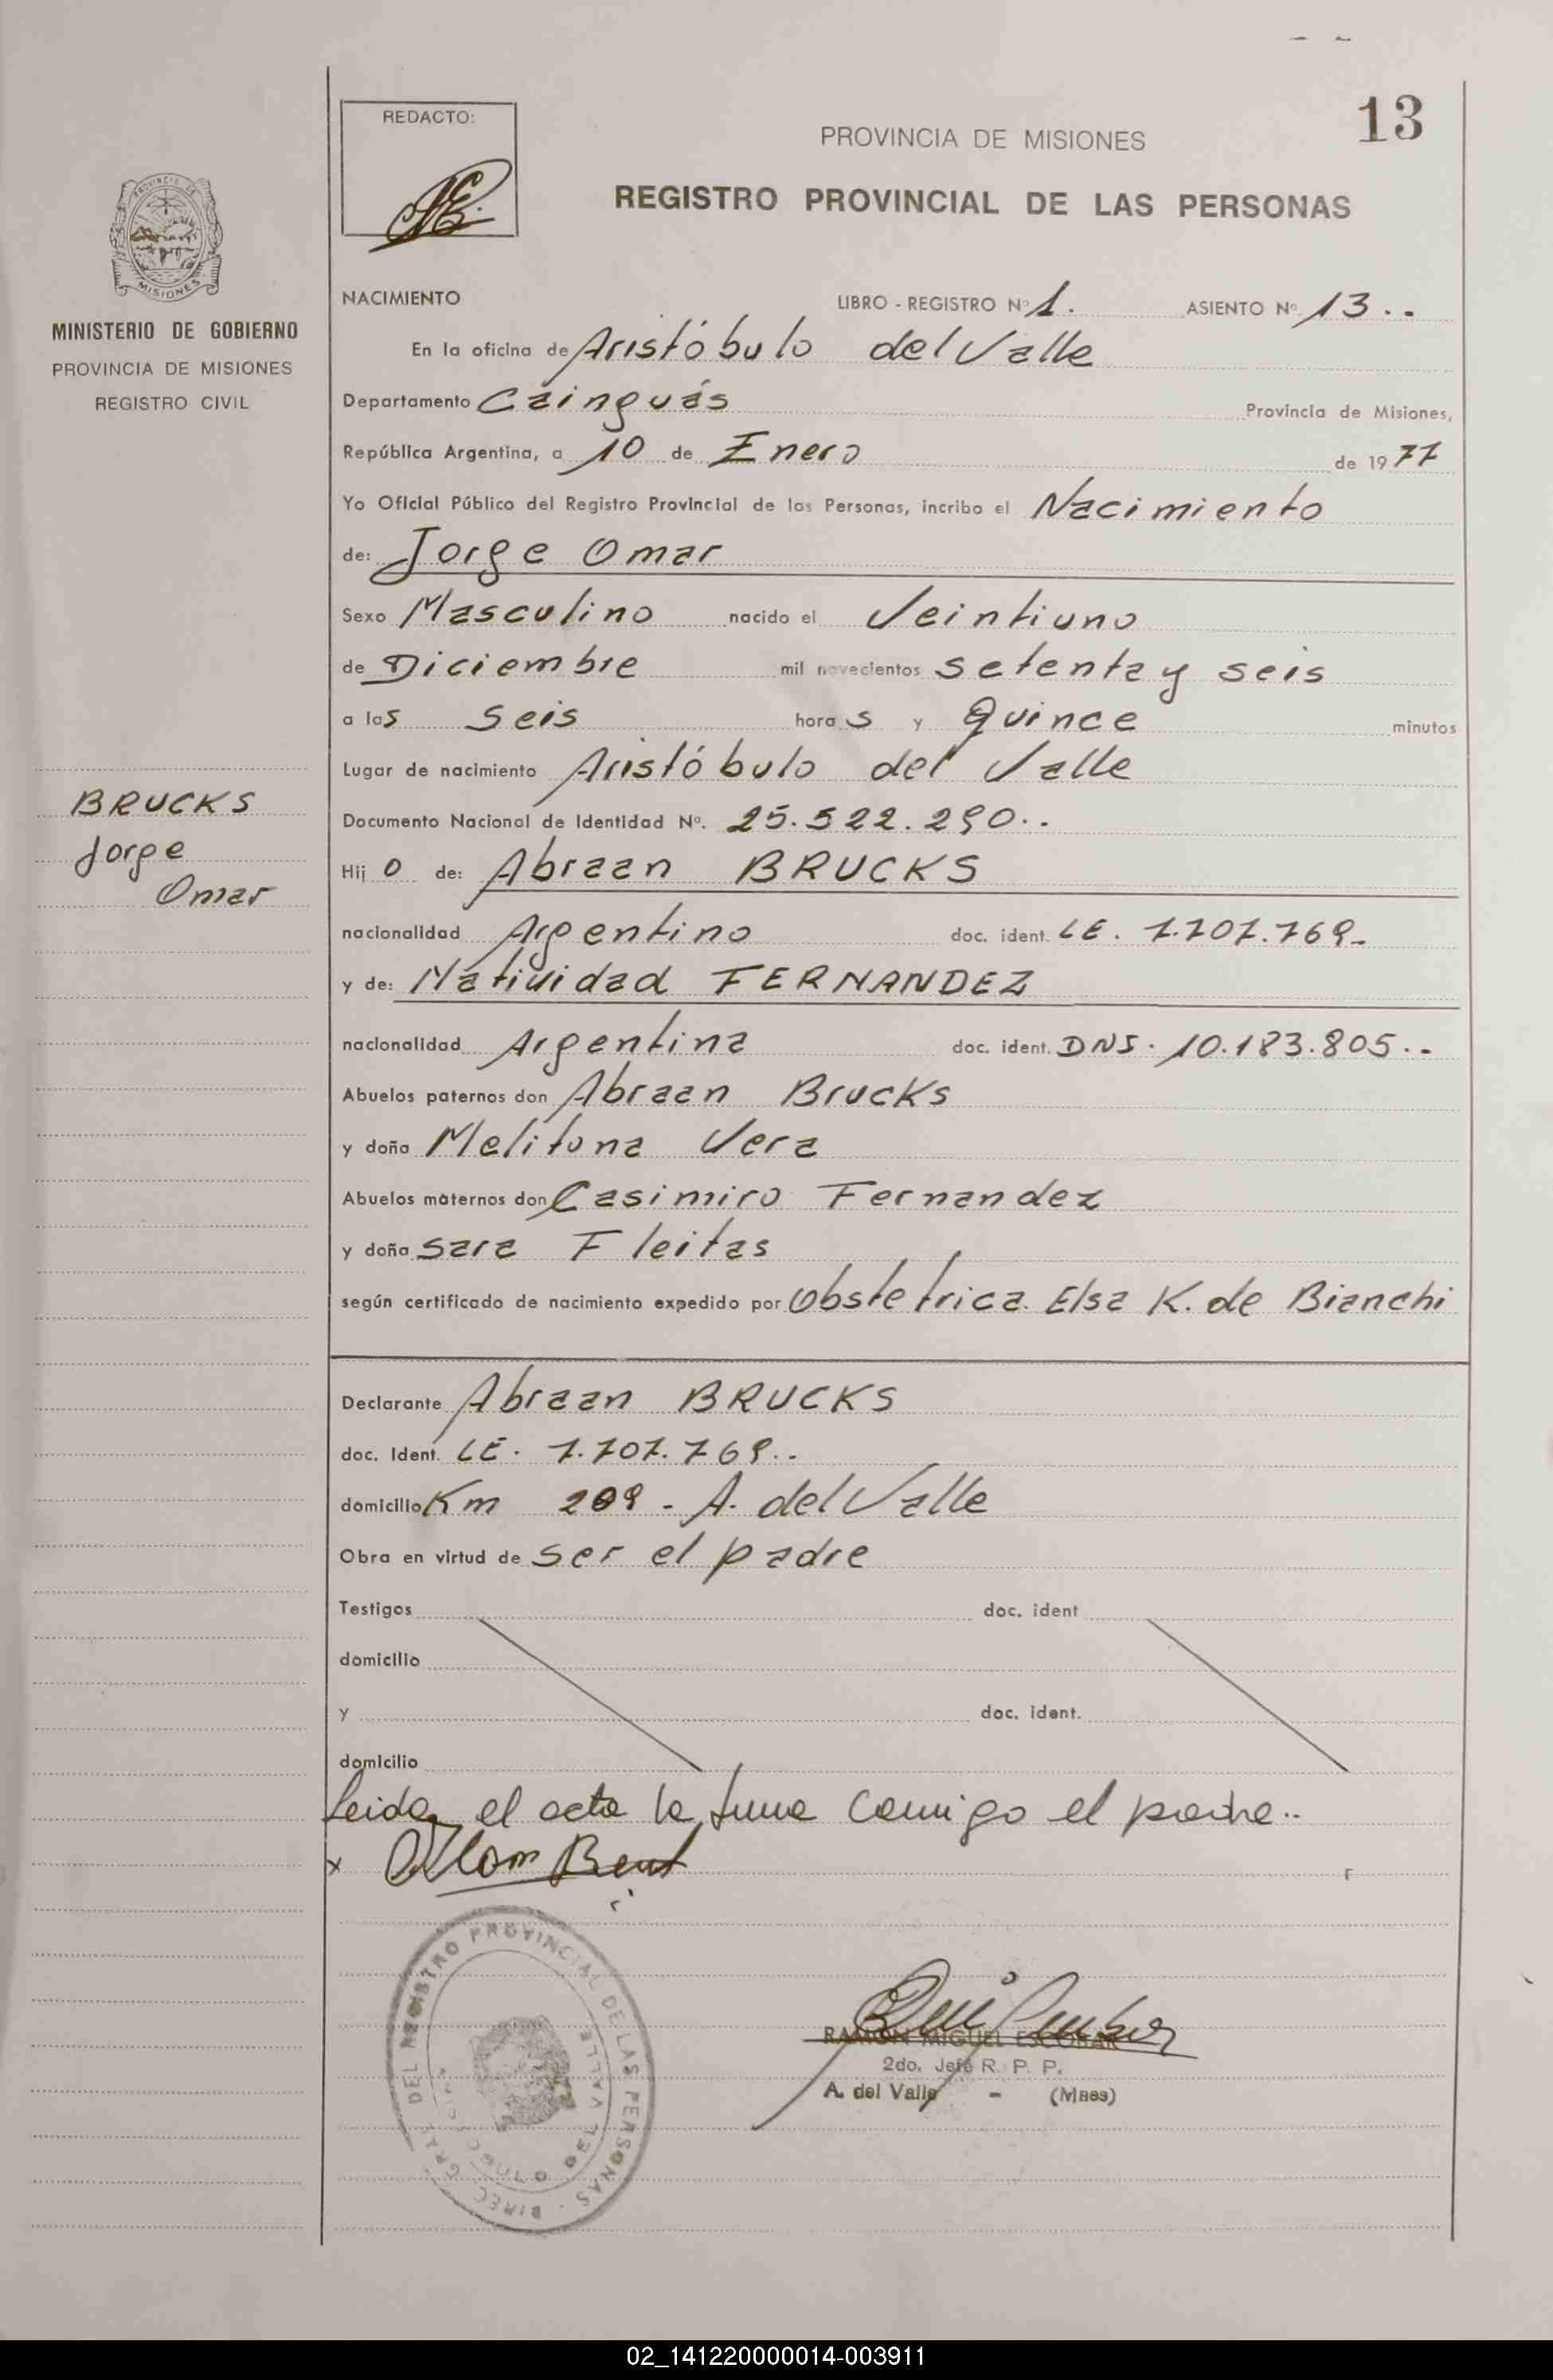 13
REDACTO:
PROVINCIA DE MISIONES
REGISTRO PROVINCIAL DE LAS PERSONAS
MISIONES
MINISTERIO DE GOBIERNO
PROVINCIA DE MISIONES
REGISTRO CIVIL
BRUCKS
Jorge
Omar
NACIMIENTO LIBRO - REGISTRO Nº 1. ASIENTO Nº 13..
En la oficina de Aristóbulo del Valle
Departamento Cainguás Provincia de Misiones,
República Argentina, a 10 de Enero de 1977
Yo Oficial Público del Registro Provincial de las Personas, incribo el Nacimiento
de: Jorge Omar
Sexo Masculino nacido el Veintiuno
de Diciembre mil novecientos setenta y seis
a las seis horas y Quince minutos
Lugar de nacimiento Aristóbulo del Valle
Documento Nacional de Identidad Nº. 25.522.290..
Hijo de: Abraan BRUCKS
nacionalidad Argentino doc. ident. LE. 7.707.769-
y de: Natividad FERNANDEZ
nacionalidad Argentina doc. ident. DNS. 10.183.805..-
Abuelos paternos don Abraan Brucks
y doña Melitona Vera
Abuelos maternos don Casimiro Fernandez
y doña Sara Fleitas
según certificado de nacimiento expedido por Obstetrica Elsa K. de Bianchi
Declarante Abraan BRUCKS
doc. Ident. LE. 7.707.769..
domicilio Km 209 - A. del Valle
Obra en virtud de ser el padre
Testigos doc. ident
domicilio
y doc. ident.
domicilio
Leida el acta la firma conmigo el padre..
x
DIREC. GRAL. DEL REGISTRO PROVINCIAL DE LAS PERSONAS
RAMON MIGUEL ESCOBAR
2do. Jefe R. P. P.
A. del Valle - (Mnes)
02_141220000014-003911